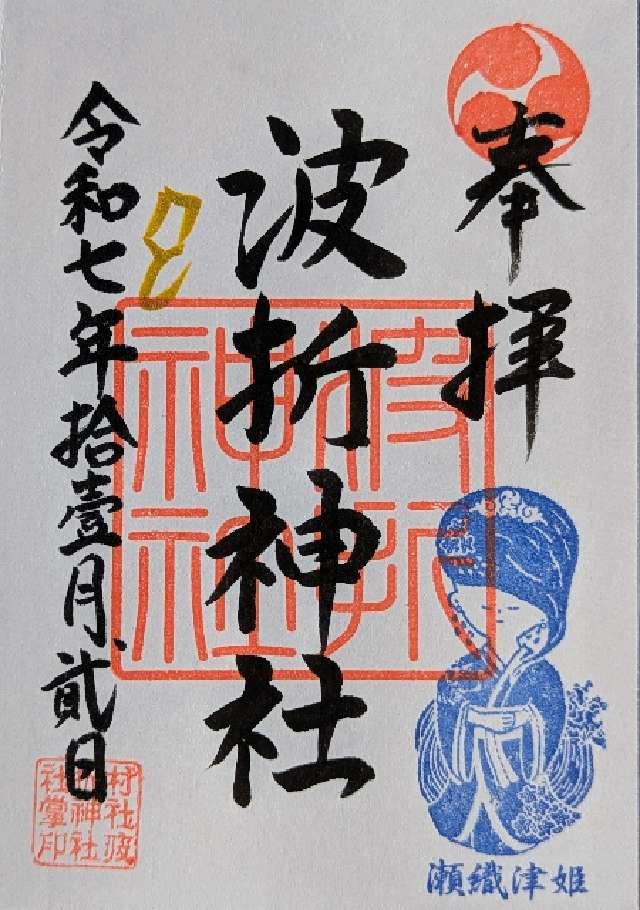 奉拝
波折神社
令和七年拾壹月貳日
波折神社
村社波折神社掌印
瀬織津姫